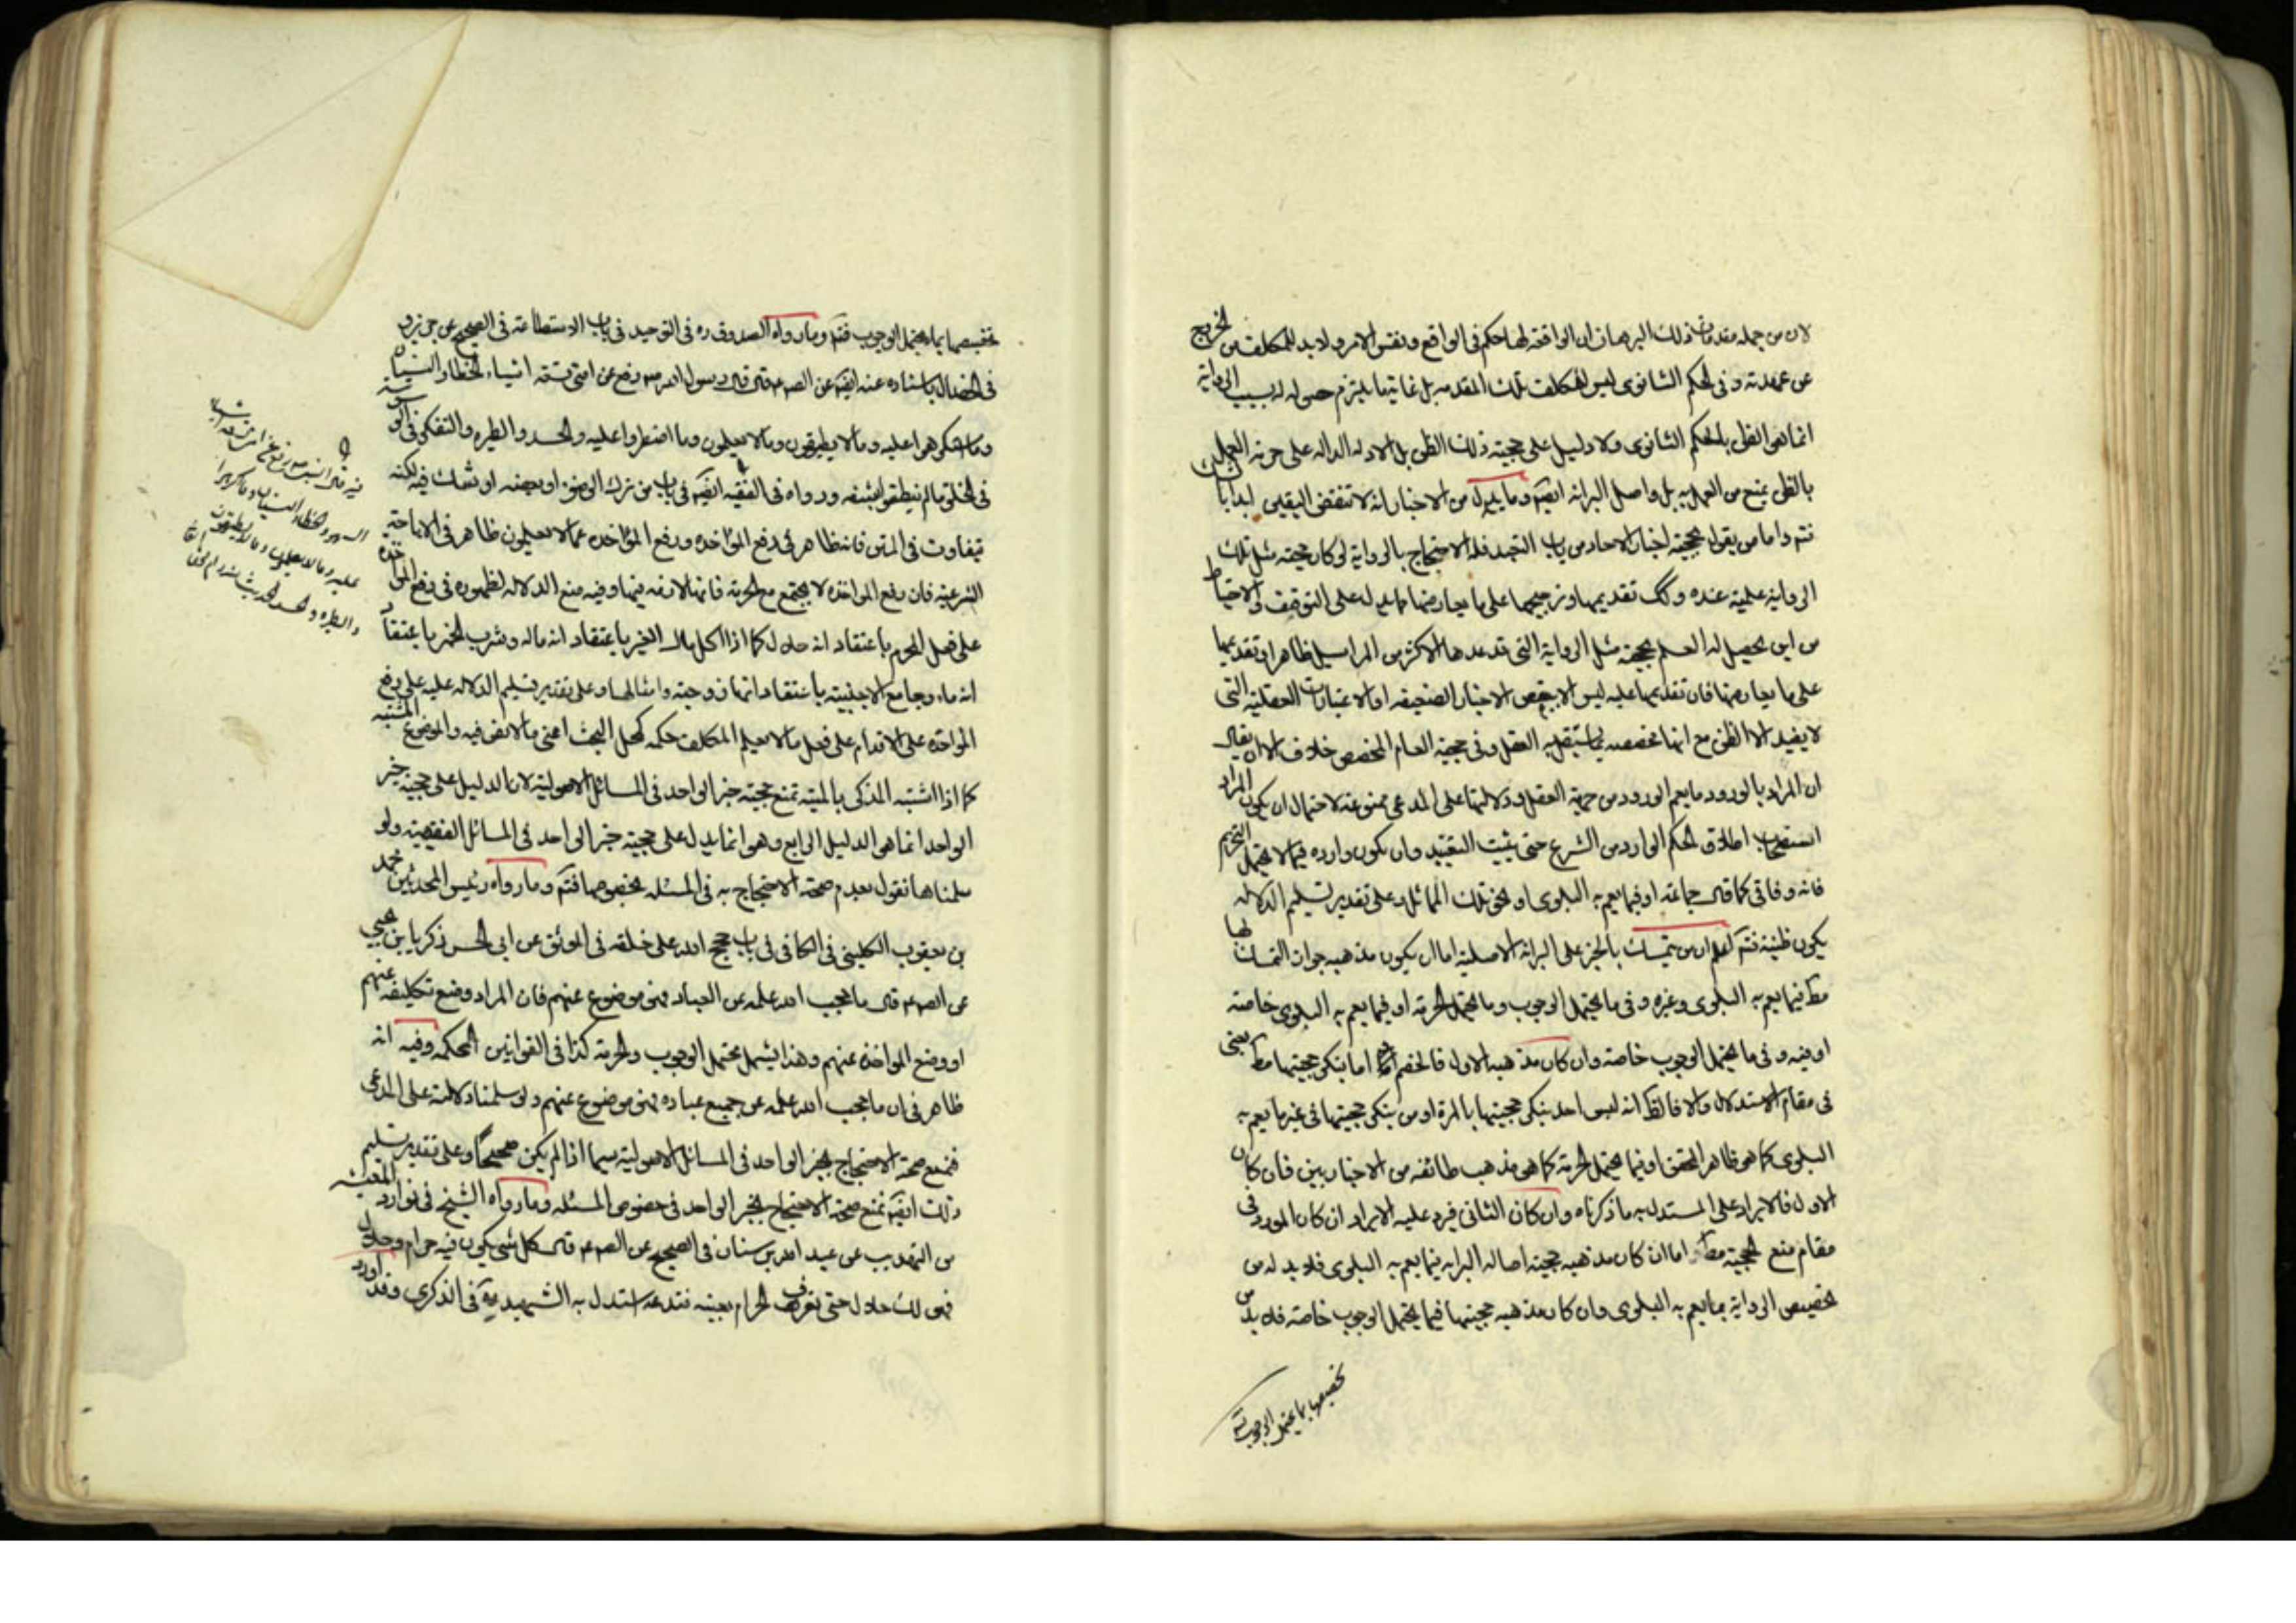 لان من جمله مقدمات ذلك البرهان ان الواقعة لها حكم فى الواقع ونفس الامر ولا بد للمكلف من الخروج
عن عهدته وفى الحكم الثانوى ليس للمكلف تلك المقدمه بل غايتها يلتزم حصوله له بسبب الرواية
انما هو الظن بالحكم الثانوى ولا دليل على حجيته ذلك الظن بل الادله الداله على حرمة العمل
بالظن تمنع من العمل به بل واصل البرائه ايضا وما يدل من الاخبار انه لا تنقض اليقين ابدا بالشك
فتم واما من يقول بحجية اخبار الاحاد من باب التعبد فله الاحتجاج بالرواية لو كان حجية مثل تلك
الرواية علمية عنده وكك تقديمها وترجيحها على ما يعارضها مما يدل على التوقف والاحتياط
من اين يحصل له العلم بحجية مثل الرواية التى قد عدها الاكثر من المراسيل ظاهرا وتقديمها
على ما يعارضها فان تقديمها عليه ليس الا ببعض الاخبار الضعيفه او الاعتبارات العقلية التى
لا يفيد الا الظن مع انها مخصصه بما يستقل به العقل وفى حجية العام المخصص خلاف الا ان يقال
ان المراد بالورود ما يعم الورود من جهة العقل ودلالتها على المدعى ممنوعة لاحتمال ان يكون المراد
استصحاب اطلاق الحكم الوارد من الشرع حتى يثبت التقييد وان يكون وارده فيما لا يحتمل التحريم
فانه وفاقى كما قال جماعة او فيما يعم به البلوى او نحو تلك المسائل وعلى تقدير تسليم الدلاله
يكون ظنية فتم اعلم ان من يتمسك بالخبر على البرائة الاصلية اما ان يكون مذهبه جواز التمسك لها
مط فيما يعم به البلوى وغيره وفى ما يحتمل الوجوب وما يحتمل الحرمة او فيما يعم به البلوى خاصة
او فيه وفى ما يحتمل الوجوب خاصة وان كان مذهبه الاول فالخصم اما ينكر حجيتها مط يعنى
فى مقام الاستدلال والا فالظ انه ليس احد ينكر حجيتها بالمرة او من ينكر حجيتها فى غير ما يعم به
البلوى كما هو ظاهر المحقق او فيما يحتمل الحرمة كما هو مذهب طائفة من الاخباريين فان كان
الاول فالايراد على المستدل به ما ذكرناه وان كان الثانى فيرد عليه الايراد ان كان المورد فى
مقام منع الحجية مط اما ان كان مذهبه حجية اصالة البراءه فيما يعم به البلوى فلا بد له من
تخصيص الرواية بما يعم به البلوى وان كان مذهبه حجيتها فيما يحتمل الوجوب خاصة فلا بد من
تخصيصها بما يحتمل الوجوب فتم
تخصيصها بما يحتمل الوجوب فتم وما رواه الصدوق ره فى التوحيد فى باب الاستطاعة فى الصحيح عن حريز و
فى الخصال باسناده عنه ايضا عن الصم قال قال رسول الله ص رفع عن امتى تسعة اشياء الخطاء والنسيان
وما اكرهوا عليه وما لا يطيقون وما لا يعلمون وما اضطروا عليه والحسد والطيره والتفكر فى الوسوسة
فى الخلق ما لم ينطقوا بشفه ورواه فى الفقيه ايضا فى باب من ترك الوضوء او بعضه او شك فيه لكنه
بتفاوت فى المتن فانه ظاهر فى رفع المؤاخذه ورفع المؤاخذه عما لا يعلمون ظاهر فى الاباحة
الشرعية فان رفع المواخذه لا يجتمع مع الحرمة فانها لازمه فيها وفيه منع الدلاله لظهوره فى رفع المواخذه
على فعل المحرم باعتقاد انه حلال كما اذا اكل مال الغير باعتقاد انه ماله وشرب الخمر باعتقاد
انه ماء وجامع الاجنبية باعتقاد انها زوجته وامثالها وعلى تقدير تسليم الدلاله عليه على رفع
المواخذه على الاقدام على فعل ما لا يعلم المكلف حكمه كمحل البحث اعنى ما لا نص فيه والموضوع المشتبه
كما اذا اشتبه المذكى بالميته تمنع حجية خبر الواحد فى المسائل الاصولية لان الدليل على حجية خبر
الواحد انما هو الدليل الرابع وهو انما يدل على حجية خبر الواحد فى المسائل الفقهية ولو
سلمناها نقول بعدم صحة الاحتجاج به فى المسئله بخصوصها فتم وما رواه رئيس المحدثين محمد
بن يعقوب الكلينى فى الكافى فى باب حجج الله على خلقه فى الموثق عن ابى الحسن زكريا بن يحيى
عن الصم قال ما حجب الله علمه عن العباد فهو موضوع عنهم فان المراد وضع تكليفه عنهم
او وضع المواخذه عنهم وهذا يشمل محتمل الوجوب والحرمة كذا فى القوانين المحكمه وفيه انه
ظاهر فى ان ما حجب الله علمه عن جميع عباده فهو موضوع عنهم ولو سلمنا دلالته على المدعى
فنمنع صحة الاحتجاج بخبر الواحد فى المسائل الاصولية سيما اذا لم يكن صحيحا وعلى تقدير تسليم
ذلك ايضا نمنع صحة الاحتجاج بخبر الواحد فى خصوص المسئله وما رواه الشيخ فى نوادر المعيشه
من التهذيب عن عبد الله بن سنان فى الصحيح عن الصم قال كل شئ يكون فيه حرام وحلال
فهو لك حلال حتى تعرف الحرام بعينه فتدعه استدل به الشهيد ره فى الذكرى وقد اورد
فيه قال النبى ص رفع عن امتى تسعة اشياء
السهو والخطاء والنسيان وما اكرهوا
عليه وما لا يعلمون وما لا يطيقون
والطيره والحسد